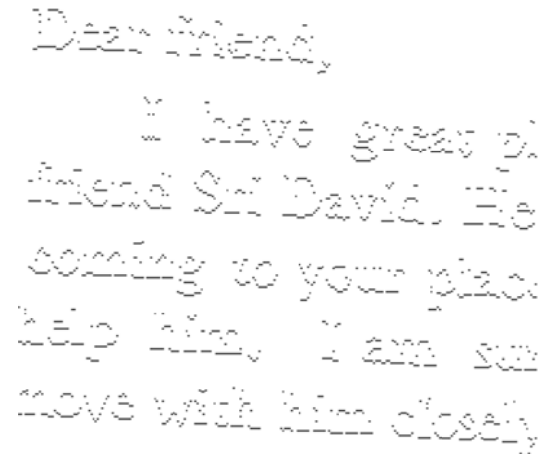 Dear friend,
I have great pl
friend Sri David. He
coming to your plac
help him. I am sur
move with him closely